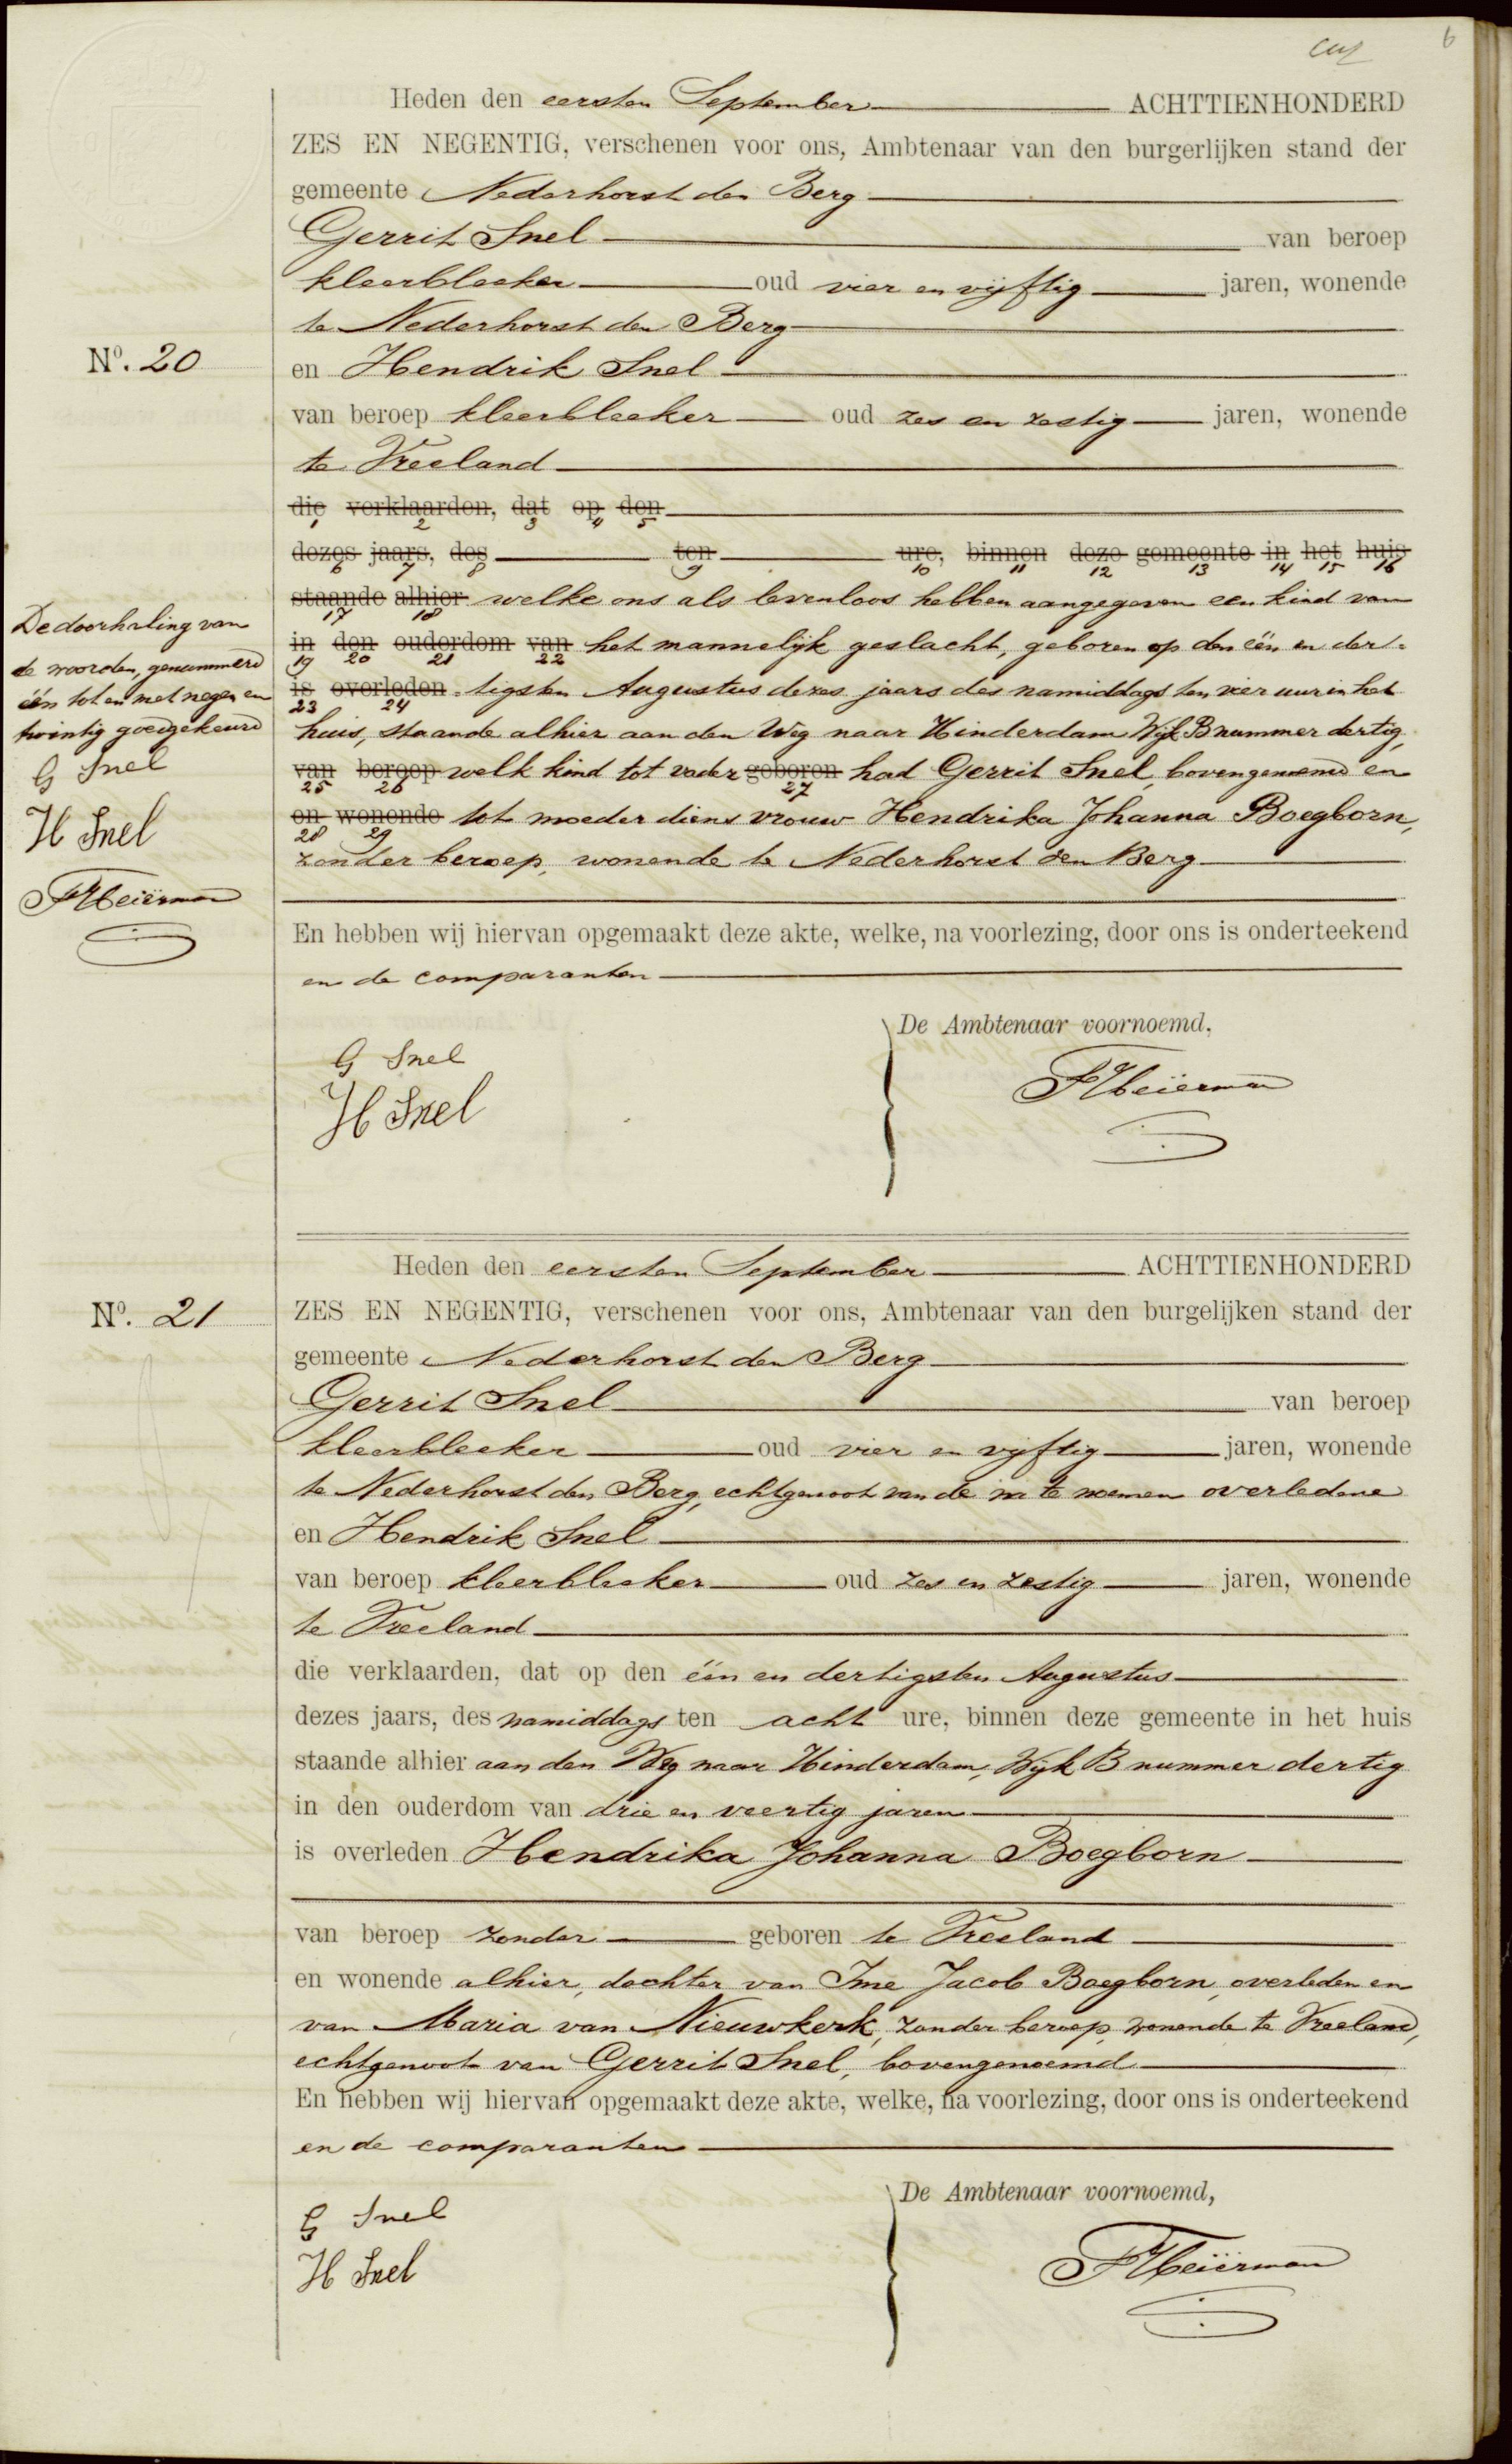 6
Heden den eersten September ACHTTIENHONDERD
ZES EN NEGENTIG, verschenen voor ons, Ambtenaar van den burgerlijken stand der
gemeente Nederhorst den Berg
Gerrit Snel van beroep
kleerbleeker oud vier en vijftig jaren, wonende
te Nederhorst den Berg
Nº. 20
en Hendrik Snel
van beroep kleerbleeker oud zes en zestig jaren, wonende
te Vreeland
die verklaarden, dat op den
1 2 3 4 5
dezes jaars, des ten ure, binnen deze gemeente in het huis
6 7 8 9 10 11 12 13 14 15 16
staande alhier welke ons als levenloos hebben aangegeven een kind van
17 18
in den ouderdom van het mannelijk geslacht, geboren op den één en der-
19 20 21 22
is overleden tigsten Augustus dezes jaars des namiddags ten vier uur in het
23 24
huis, staande alhier aan den Weg naar Hinderdam Wijk B nummer dertig,
van beroep welk kind tot vader geboren had Gerrit Snel, bovengenoemd en
25 26 27
en wonende tot moeder diens vrouw Hendrika Johanna Boegborn,
28 29
zonder beroep, wonende te Nederhorst den Berg
De doorhaling van
de woorden, genummerd
één tot en met negen en
twintig goedgekeurd
G Snel
H Snel
FHeiërman
En hebben wij hiervan opgemaakt deze akte, welke, na voorlezing, door ons is onderteekend
en de comparanten
De Ambtenaar voornoemd,
G Snel
H Snel
FHeiërman
Heden den eersten September ACHTTIENHONDERD
Nº. 21
ZES EN NEGENTIG, verschenen voor ons, Ambtenaar van den burgelijken stand der
gemeente Nederhorst den Berg
Gerrit Snel van beroep
kleerbleeker oud vier en vijftig jaren, wonende
te Nederhorst den Berg, echtgenoot van de na te noemen overledene
en Hendrik Snel
van beroep kleerbleeker oud zes en zestig jaren, wonende
te Vreeland
die verklaarden, dat op den één en dertigsten Augustus
dezes jaars, des namiddags ten acht ure, binnen deze gemeente in het huis
staande alhier aan den Weg naar Hinderdam, Wijk B nummer dertig
in den ouderdom van drie en veertig jaren
is overleden Hendrika Johanna Boegborn
van beroep zonder geboren te Vreeland
en wonende alhier, dochter van Ime Jacob Boegborn, overleden en
van Maria van Nieuwkerk, zonder beroep, wonende te Vreeland,
echtgenoot van Gerrit Snel, bovengenoemd
En hebben wij hiervan opgemaakt deze akte, welke, na voorlezing, door ons is onderteekend
en de comparanten
De Ambtenaar voornoemd,
G Snel
H Snel
FHeiërman